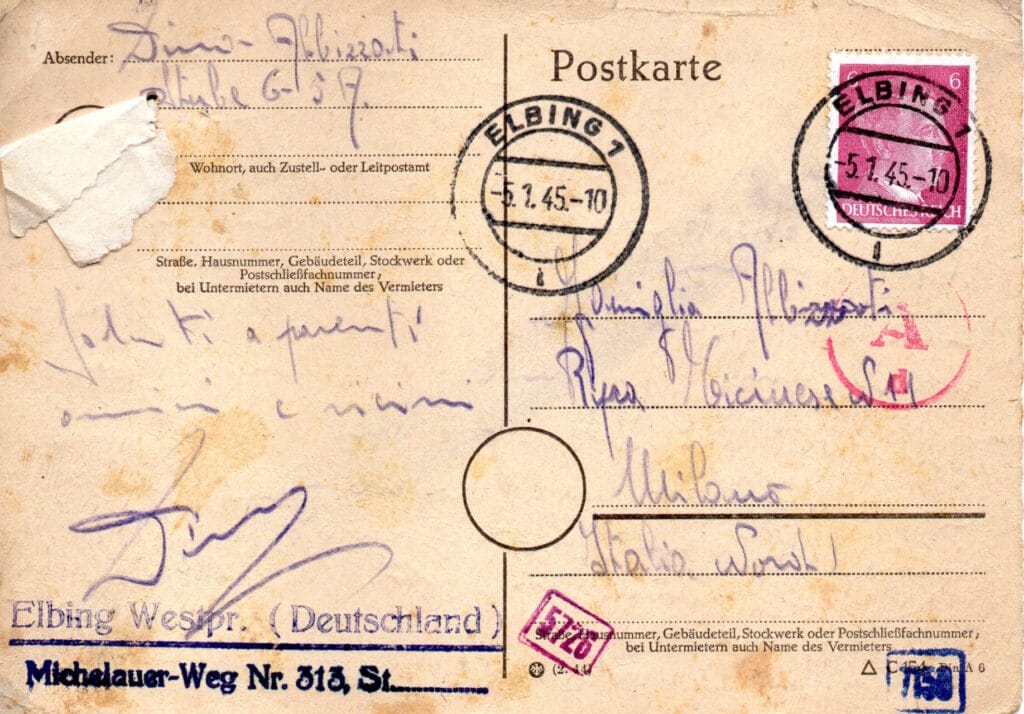 Absender: Dino Albizzati
Stube 6-5 A.
Wohnort, auch Zustell- oder Leitpostamt
Straße, Hausnummer, Gebäudeteil, Stockwerk oder
Postschließfachnummer,
bei Untermietern auch Name des Vermieters
Saluti a parenti
amici e vicini
Dino
Elbing Westpr. (Deutschland)
Michelauer-Weg Nr. 313, St.
Postkarte
ELBING 1
-5.1.45.-10
6 6
DEUTSCHES REICH
ELBING 1
-5.1.45.-10
Famiglia Albizzati
A
d
Ripa Ticinese
Milano
Italia Nord
5726
Straße, Hausnummer, Gebäudeteil, Stockwerk oder Postschließfachnummer,
bei Untermietern auch Name des Vermieters
(2. 44)
C 154 Din A 6
7150